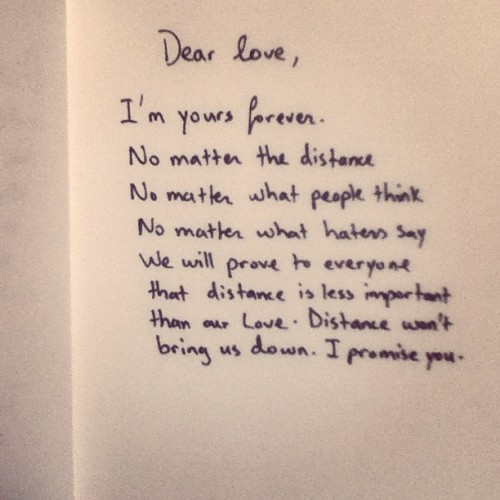 Dear love,
I'm yours forever.
No matter the distance
No matter what people think
No matter what haters say
We will prove to everyone
that distance is less important
than our Love. Distance won't
bring us down. I promise you.